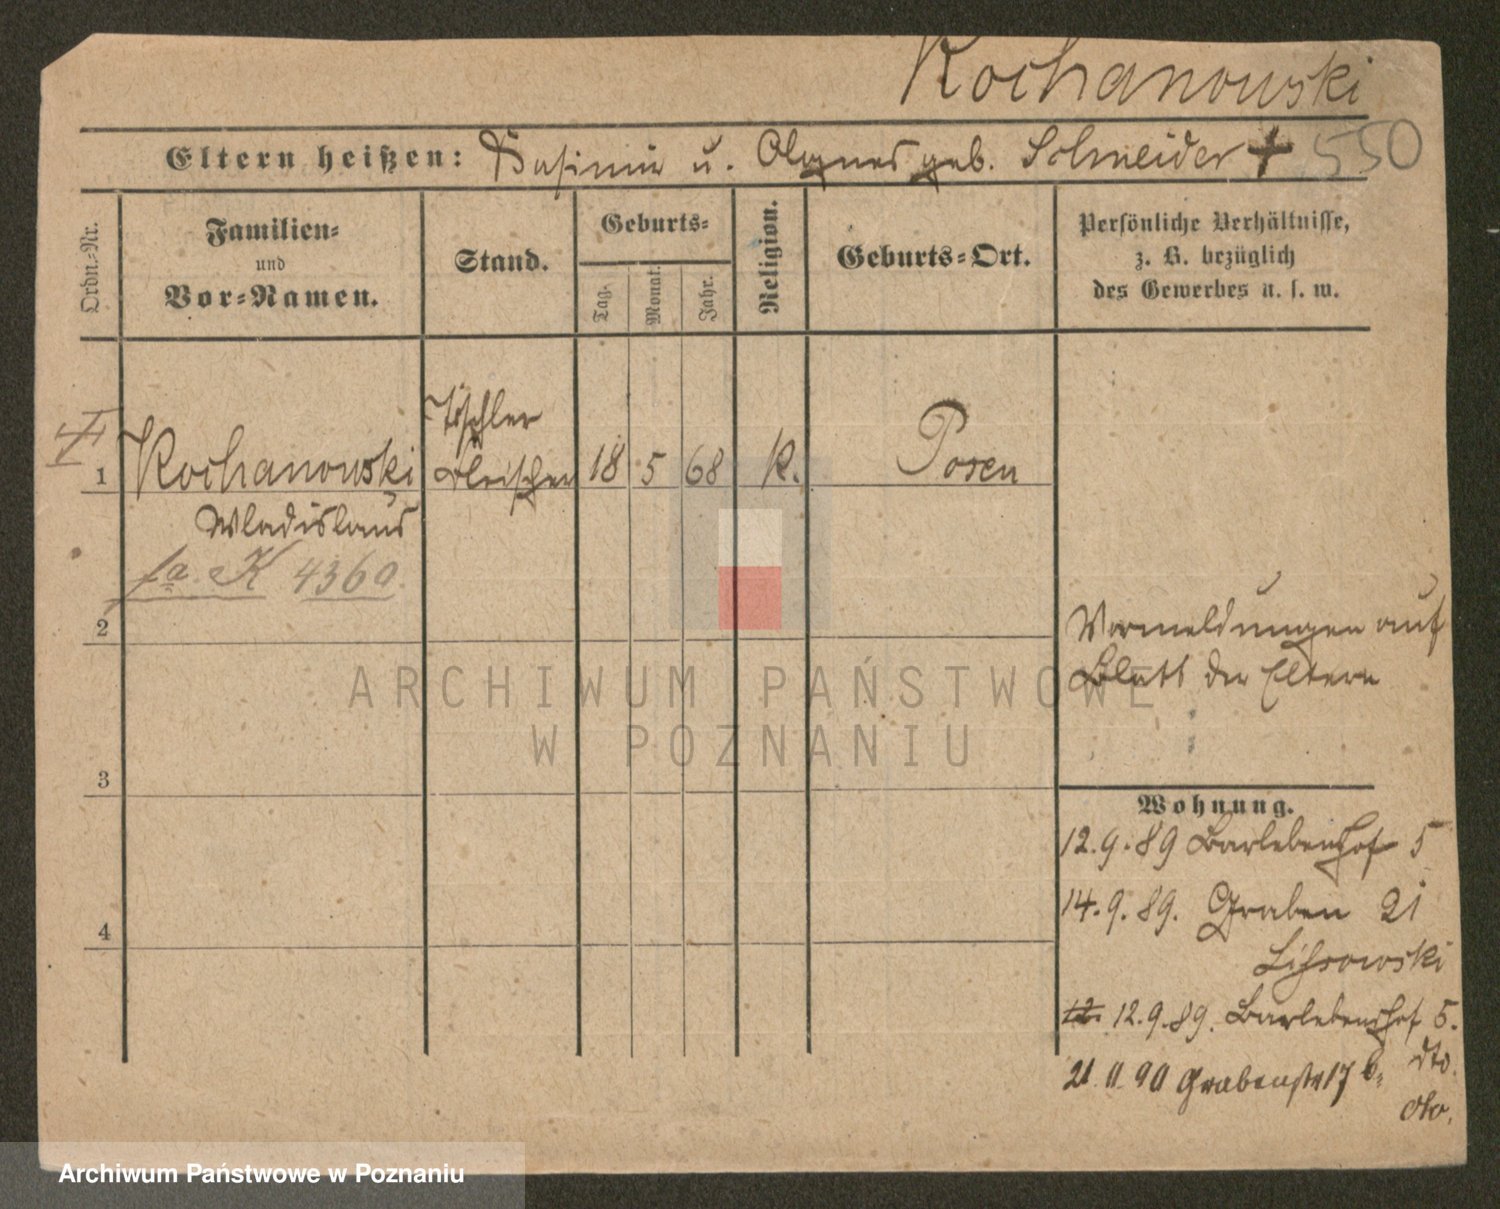 Kochanowski
Eltern heißen: Casimir u. Agnes geb. Schneider † 550
Ordn.-Nr.
Familien-
und
Vor-Namen.
Stand.
Geburts-
Tag.
Monat.
Jahr.
Religion.
Geburts-Ort.
Persönliche Verhältnisse,
z. B. bezüglich
des Gewerbes u. s. w.
1 Kochanowski Tischler 18 5 68 K. Posen
Wladislaus
fa K 4360
2
Vormeldungen auf
Blatt der Eltern
3
Wohnung.
12.9.89 Barlebenshof 5
14.9.89. Graben 21
4
12. 12.9.89. Barlebenshof 5.
dto.
21 11 90 Grabenstr 17 b.
dto.
ARCHIWUM PAŃSTWOWE
W POZNANIU
Archiwum Państwowe w Poznaniu